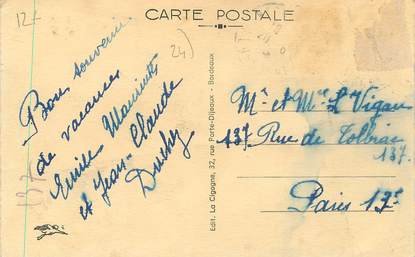 12-
CARTE POSTALE
24)
Bon souvenir
de vacances
Emile Mauricette
et Jean-Claude
Duchy
Edit. La Cigogne, 32, rue Porte-Dijeaux - Bordeaux
Mr et Mme L Vigan
137 Rue de Tolbiac
137.
Paris 13e
137